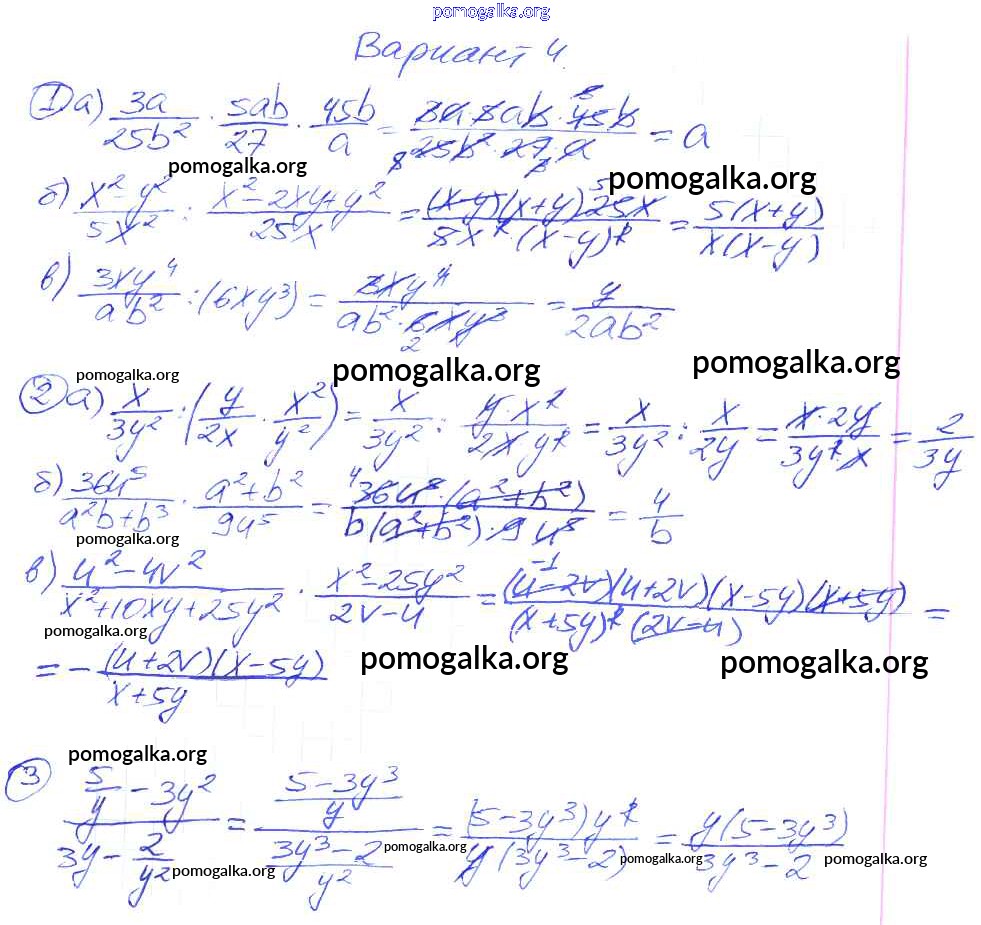 pomogalka.org
Вариант 4.
① а) 3a/25b² · 5ab/27 · 45b/a = 3a·5ab·45b/25b²·27·a = a
pomogalka.org
pomogalka.org
б) x²-y²/5x² : x²-2xy+y²/25x = (x-y)(x+y)25x/5x²·(x-y)² = 5(x+y)/x(x-y)
в) 3xy⁴/ab² : (6xy³) = 3xy⁴/ab²·6xy³ = y/2ab²
pomogalka.org pomogalka.org pomogalka.org
② а) x/3y² : (y/2x · x²/y²) = x/3y² : y·x²/2xy² = x/3y² : x/2y = x·2y/3y²·x = 2/3y
б) 36u⁵/a²b+b³ · a²+b²/9u⁵ = 36u⁵·(a²+b²)/b(a²+b²)·9u⁵ = 4/b
pomogalka.org
в) u²-4v²/x²+10xy+25y² · x²-25y²/2v-u = (u-2v)(u+2v)(x-5y)(x+5y)/(x+5y)²(2v-u) =
pomogalka.org
= -(u+2v)(x-5y)/x+5y
pomogalka.org pomogalka.org
pomogalka.org
③ 5/y - 3y² / 3y - 2/y² = 5-3y³/y / 3y³-2/y² = (5-3y³)y²/y(3y³-2) = y(5-3y³)/3y³-2
pomogalka.org pomogalka.org pomogalka.org pomogalka.org